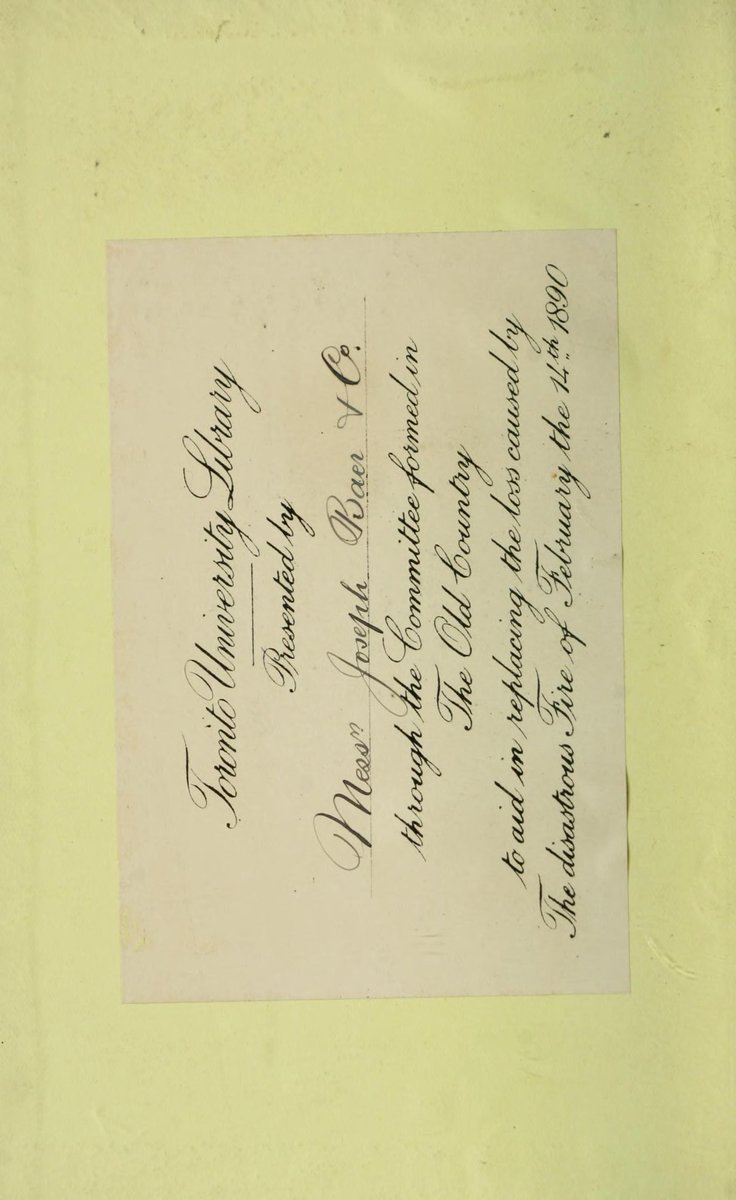 Toronto University Library
Presented by
Messrs Joseph Baer & Co.
through the Committee formed in
The Old Country
to aid in replacing the loss caused by
The disastrous Fire of February the 14th 1890